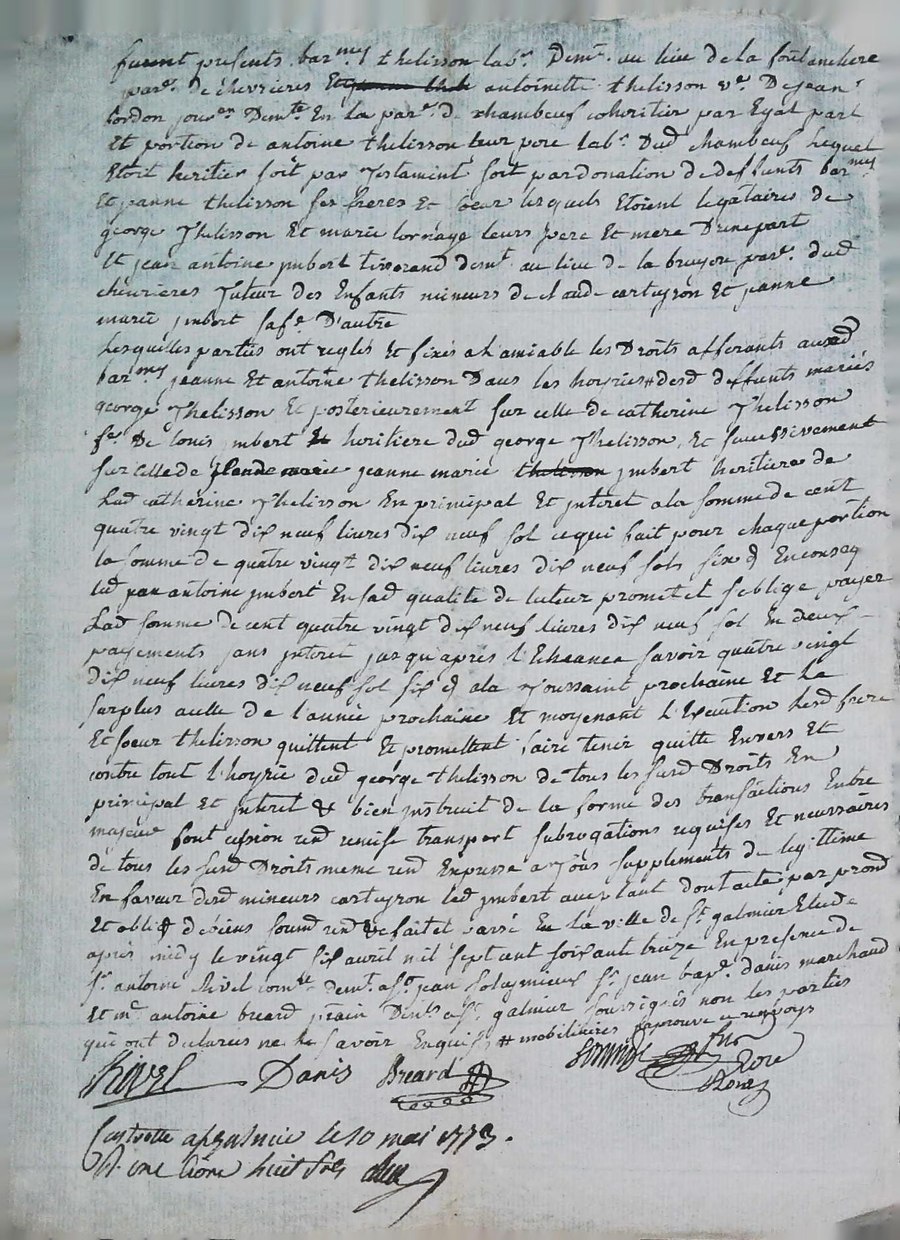 furent presents bar.my thelisson lab.r Dem.t au lieu de la fontanchere
par.e de chevrieres Et antoinette thelisson v.e De jean
jou.er Dem.te En la par.e de chambeuf coheritier par Egal part
Et portion de antoine thelisson leur pere lab.r Dud chambeuf Lequel
Etoit heritier soit par Testament soit par donation de deffunts bar.my
Et jeanne thelisson ses freres Et soeur lesquels Etoient legataires de
george Thelisson Et marie leurs pere Et mere D'une part
Et jean antoine jmbert tisserand dem.t au lieu de la bruyere par.e dud
chevrieres Tuteur des Enfants mineurs de claude carteyron Et jeanne
marie jmbert sa f.e D'autre
Lesquelles parties ont reglés Et fixés a l'amiable les Droits afferants auxd
bar.my jeanne Et antoine thelisson Dans les hoyries # desd deffunts mariés
george Thelisson Et posterieurement sur celle de catherine Thelisson
f.e De louis jmbert heritiere dud george Thelisson, Et successivement
sur celle de jeanne marie jmbert heritiere de
Lad catherine Thelisson En principal Et jnteret a la somme de cent
quatre vingt dix neuf livres dix neuf sol ce qui fait pour chaque portion
la somme de quatre vingt dix neuf livres dix neuf sols six d En conseq
led jean antoine jmbert En sad qualité de tuteur promet et s'oblige payer
Lad somme de cent quatre vingt dix neuf livres dix neuf sol En deux
payements sans jnteret jusqu'apres l'Echeance savoir quatre vingt
dix neuf livres dix neuf sol six d a la Toussaint prochaine Et Le
surplus a celle de l'année prochaine Et moyenant l'Execution lesd frere
Et soeur thelisson quittent Et promettent faire tenir quitte Envers Et
contre tout l'hoyrie dud george thelisson de tous les susd Droits En
principal Et jnteret & bien jnstruit de la forme des transactions Entre
majeur font cession remise transport subrogations requises Et necessaires
de tous les susd Droits meme Expresse a Tous supplements de legittime
En faveur desd mineurs carteyron led jmbert acceptant dont acte par prom
Et oblig de biens soum ren & fait et passé En la ville de S.t galmier Etude
apres midy le vingt six avril mil sept cent soixante treize En presence de
s.r antoine Rivel com.re dem.t a s.t jean s.r jean bap.te danis marchand
Et m.e antoine breard Dem.ts a S.t galmier soussignés non les parties
qui ont declarees ne le savoir Enquis # mobiliaires j'approuve ce renvoys
Rivel Danis Breard
Ronze
Controllé a S.t galmier le 10 mai 1773.
R. une livre huit sols